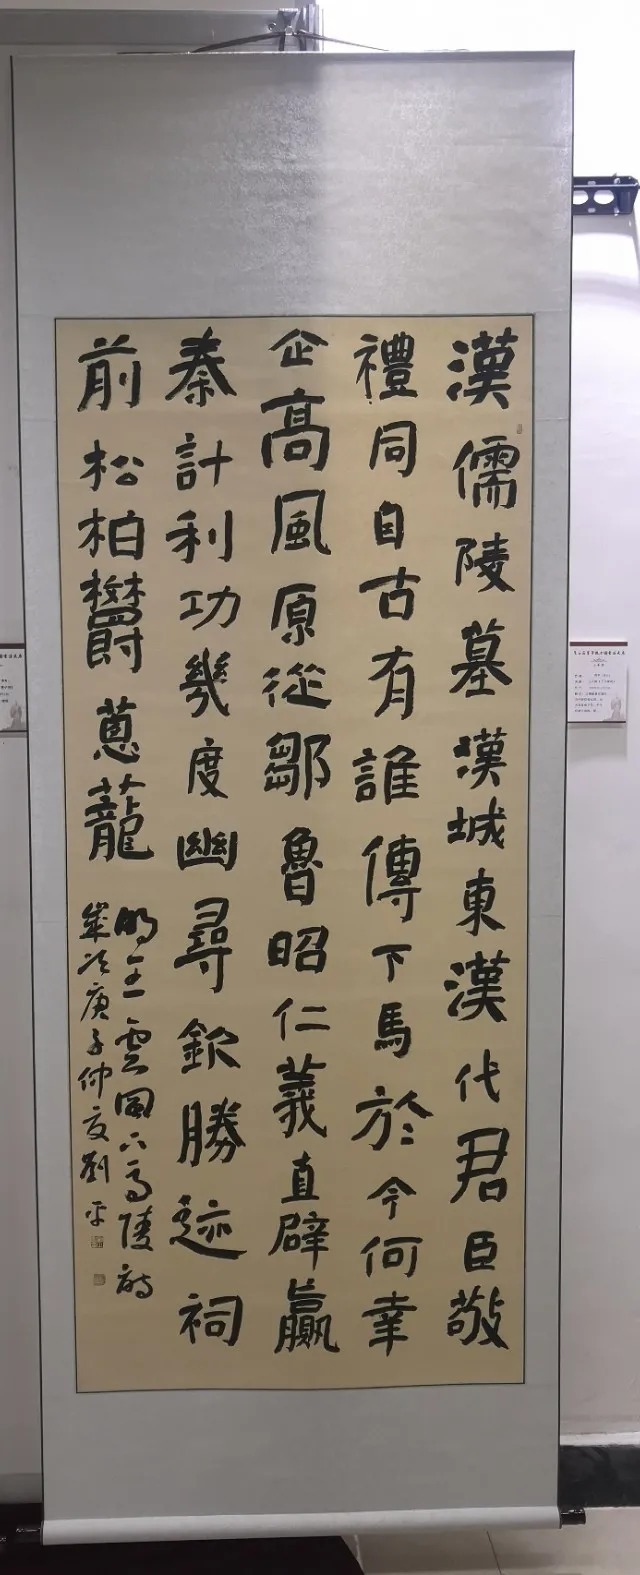 漢儒陵墓漢城東漢代君臣敬
禮同自古有誰傳下馬於今何幸
企高風原從鄒魯昭仁義直辟嬴
秦計利功幾度幽尋欽勝迹祠
前松柏欝蔥蘢
明王雲鳳下馬陵詩
歲次庚子仲夏劉平